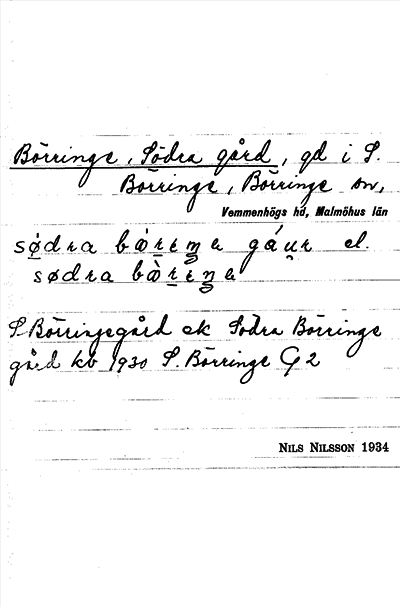 Börringe, Södra gård, gd i S.
Börringe, Börringe sn,
Vemmenhögs hd, Malmöhus län
sødra børiŋe gáu̯r el.
sødra børiŋe
S. Börringegård ek Södra Börringe
gård kb 1930 S. Börringe G 2
NILS NILSSON 1934